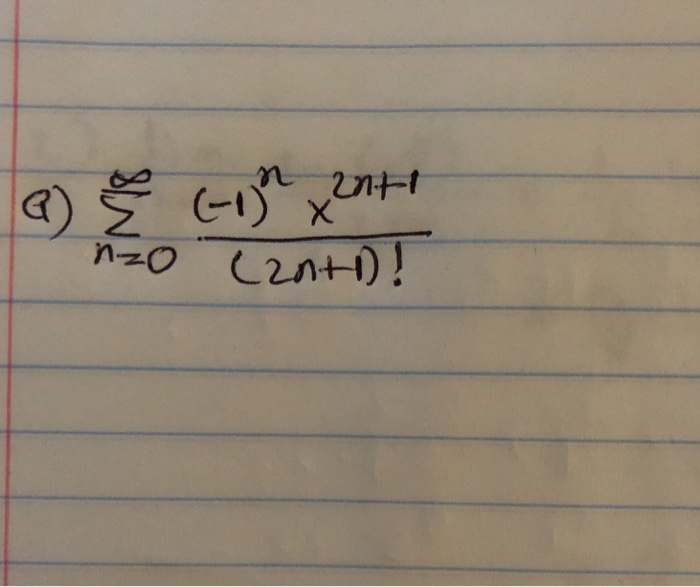 a) ∞ Σ n=0 (-1)^n x^{2n+1} / (2n+1)!